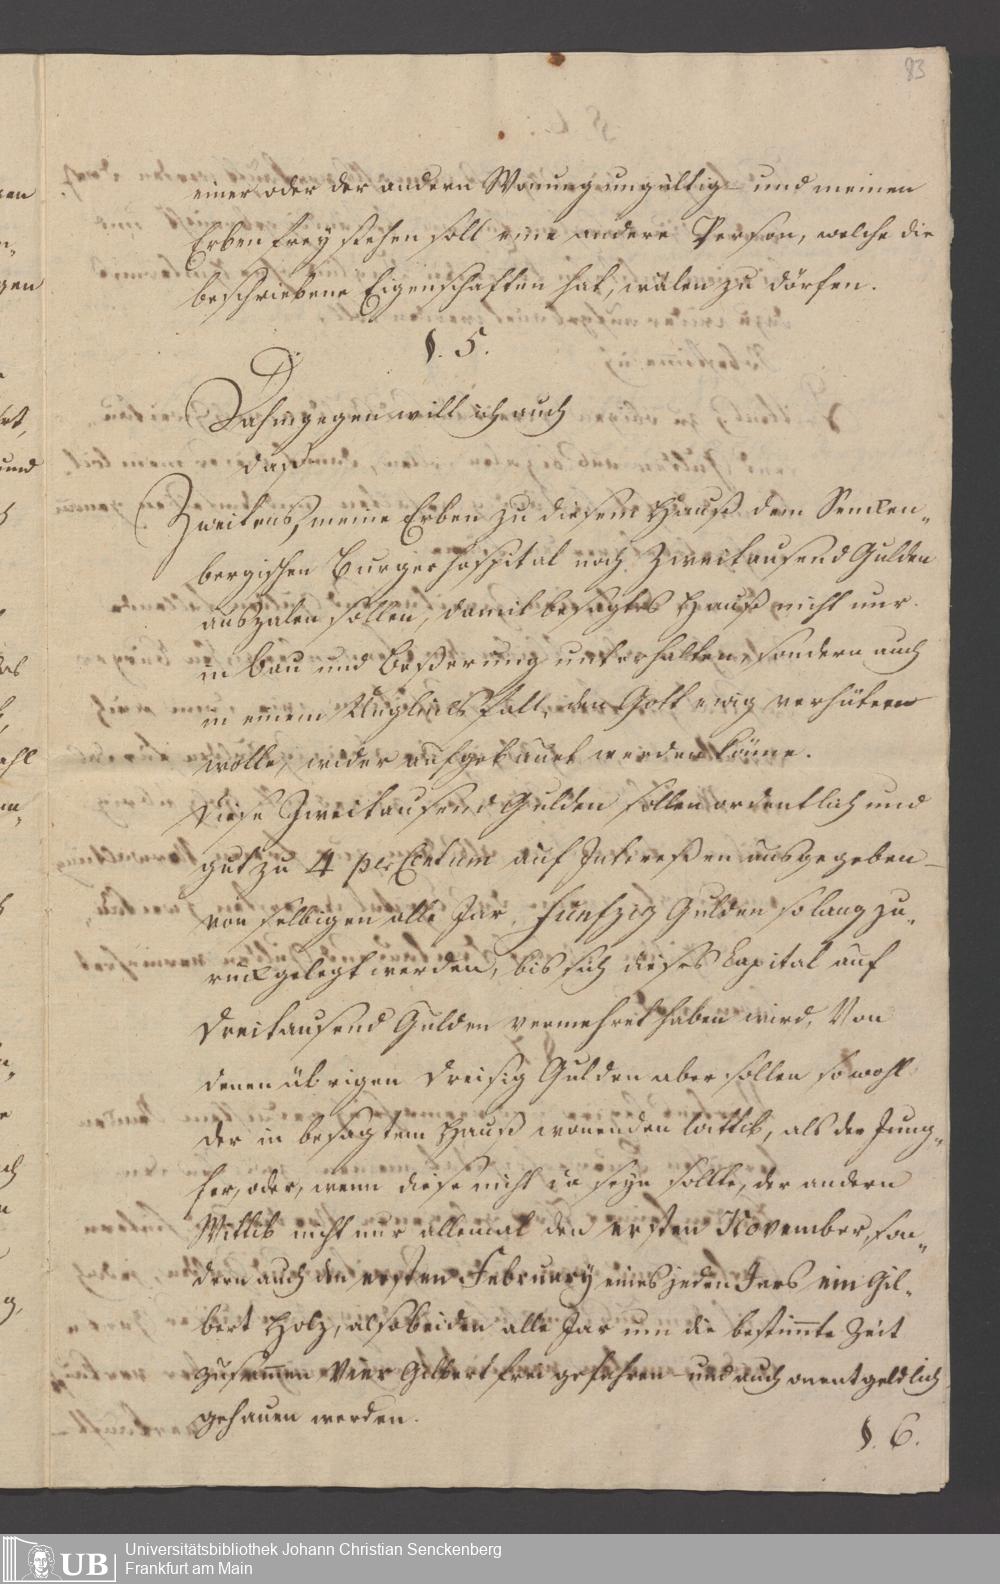 83
einer oder der andern Wonung ungültig – und meinen
Erben frey stehen soll eine andere Person, welche die
beschriebene Eigenschaften hat, wälen zu dörfen.
§. 5.
Dahingegen will ich auch
daß
Zweitens, meine Erben zu diesem Hauß dem Senken-
bergischen Burgerhospital noch Zweitausend Gulden
auszalen sollen, damit besagtes Hauß nicht nur
in Bau und Beßerung unterhalten, sondern auch
in einem Unglücks Fall, den Gott ewig verhüten
wolle, wider aufgebauet werden köne.
Diese Zweitausend Gulden sollen ordentlich und
gut zu 4 per Centum auf Intereßen ausgegeben –
von selbigen alle Jar funfzig Gulden so lang zu-
rückgelegt werden, bis sich dieses Capital auf
Dreitausend Gulden vermehret haben wird, Von
denen übrigen Dreisig Gulden aber sollen sowohl
der in besagtem Hauß wonenden Wittib, als der Jung-
fer, oder, wenn diese nicht da seyn sollte, der andern
Wittib nicht nur allemal den ersten November, son-
dern auch den ersten February eines jeden Jars ein Gil-
bert Holz, also beiden alle Jar um die bestimte Zeit
zusamen Vier Gilbert frei gefahren – und auch onentgeldlich
gehauen werden.
§. 6.
UB
Universitätsbibliothek Johann Christian Senckenberg
Frankfurt am Main